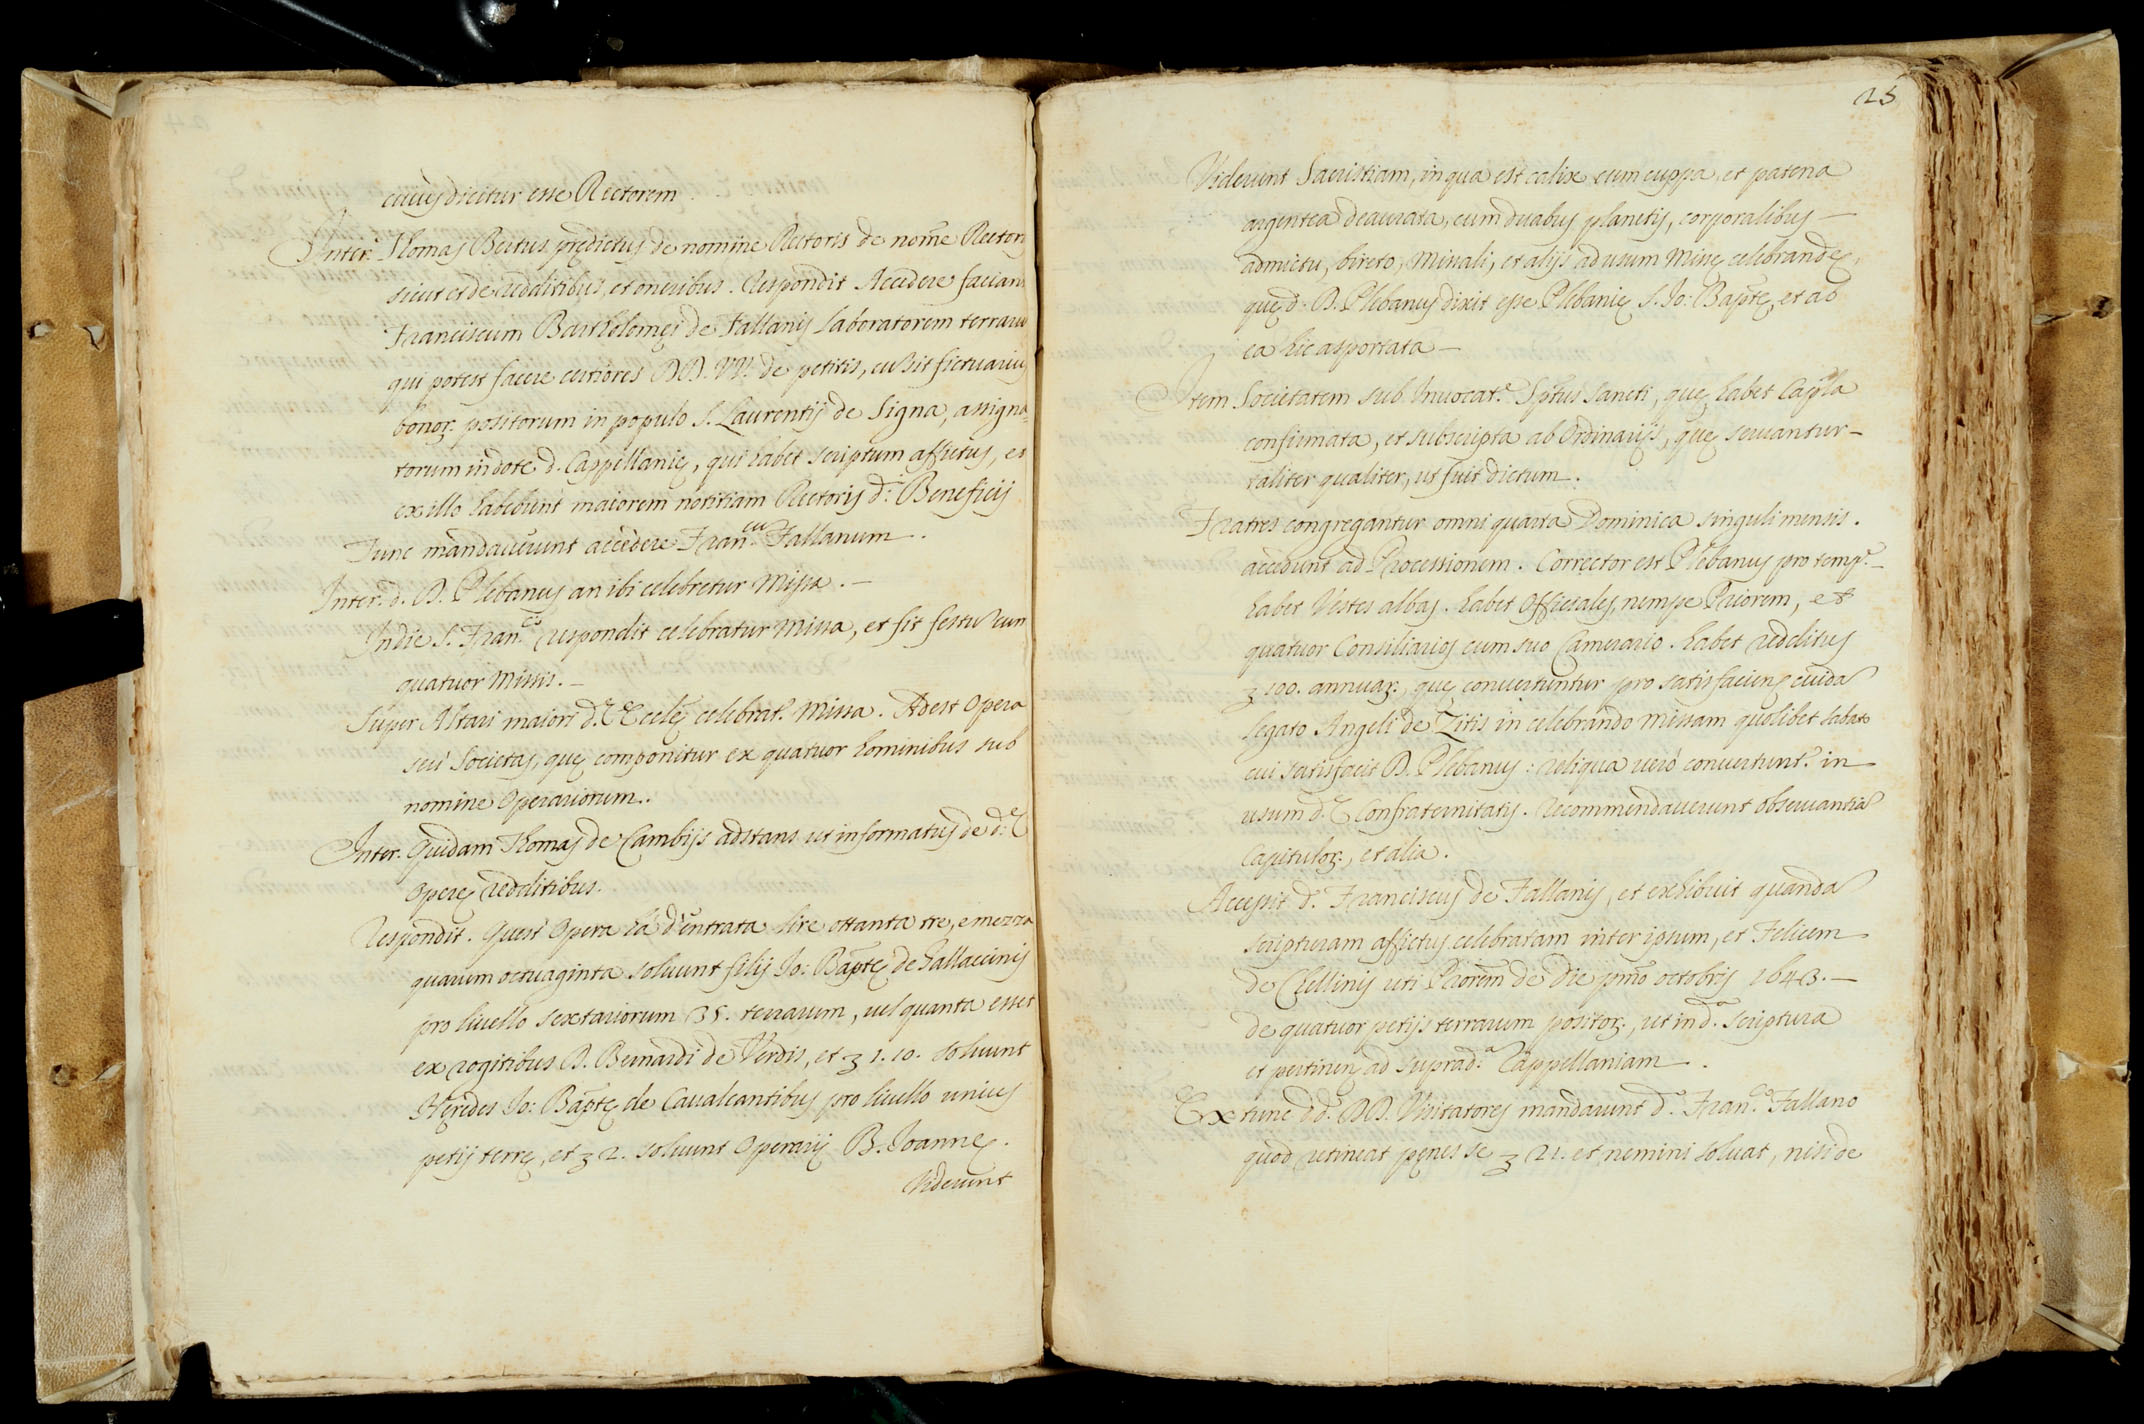 cuius dicitur esse Rectorem
Inter: Thomas Bertus prędictus de nomine Rectoris de nom̃e Rectoris
sicut et de redditibus, et oneribus. Respondit Accedere faciam
Franciscum Bartholomęi de Fallanis laboratorem terrarum
qui potest facere certiores DD. VV. de petitis, cū sit fictuarius
bonoꝝ positorum in populo S. Laurentij de Signa, assigna-
torum in dote d. Cappellanię, qui habet scriptum affictus, et
ex illo habebunt maiorem notitiam Rectoris d: Beneficij
Tunc mandauerunt accedere Fran.cū Fallanum.
Inter: d. D. Plebanus an ibi celebretur Missa. —
In die S. Fran.ci respondit celebratur Missa, et fit festū cum
quatuor Missis. —
Super Altari maiori d.ę Ecclę celebrat.r Missa. Adest Opera
seù Societas, quę componitur ex quatuor hominibus sub
nomine Operariorum..
Inter. Quidam Thomas de Cambijs adstans ut informatus de d:ę
Operę redditibus.
Respondit. Quest'Opera hà d'entrata lire ottanta tre, e mezza
quarum octuaginta soluunt filij Jo: Bap̃tę de hallaccinis
pro liuello sextariorum 35. terrarum, uel quanta esset
ex rogitibus D. Bernardi de Verdis, et ʒ 1.10. soluunt
Hęredes Jo: Bap̃tę de Caualcantibus pro liuello unius
petij terrę, et ʒ 2. soluunt Operarij B. Joannę.
Viderunt
25
Viderunt Sacristiam, in qua est calix cum cuppa, et patena
argentea deaurata, cum duabus planetis, corporalibus —
admictu, bireto, Missali, et alijs ad usum Missę celebrandę,
quę d. D. Plebanus dixit esse Plebanię S. Jo: Bap̃tę, et ab
ea hic asportata —
Item Societatem sub Inuocat.e Spũs Sancti, quę habet Cap̃la
confirmata, et subscripta ab Ordinarijs, quę seruantur —
taliter qualiter, ut fuit dictum.
Fratres congregantur omni quarta Dominica singuli mensis.
accedunt ad Processionem. Corrector est Plebanus pro temp.e —
habet Vestes albas. habet Officiales, nempe Priorem, et
quatuor Consiliarios cum suo Camerario. habet redditus
ʒ 100. annuaꝝ., quę conuertuntur pro satisfacienę cuidã
legato Angeli de Zitis in celebrando Missam quolibet sabato
cui satisfacit D. Plebanus: reliqua uerò conuertunt.r in
usum d.ę Confraternitatis. Recommendauerunt obseruantiã
Capituloꝝ., et alia.
Accessit d.s Franciscus de Fallanis, et exhibuit quandã
scripturam affictus celebratam inter ipsum, et Felicem
de Chellinis uti Priorem de die pm̃o octobris 1643. —
de quatuor petijs terrarum positoꝝ., ut in d.a scriptura
et pertinenę ad suprad.a Cappellaniam.
Ex tunc dd. DD. Visitatores mandarunt d.o Fran.co Fallano
quod retineat pęnes se ʒ 21. et nemini soluat, nisi de